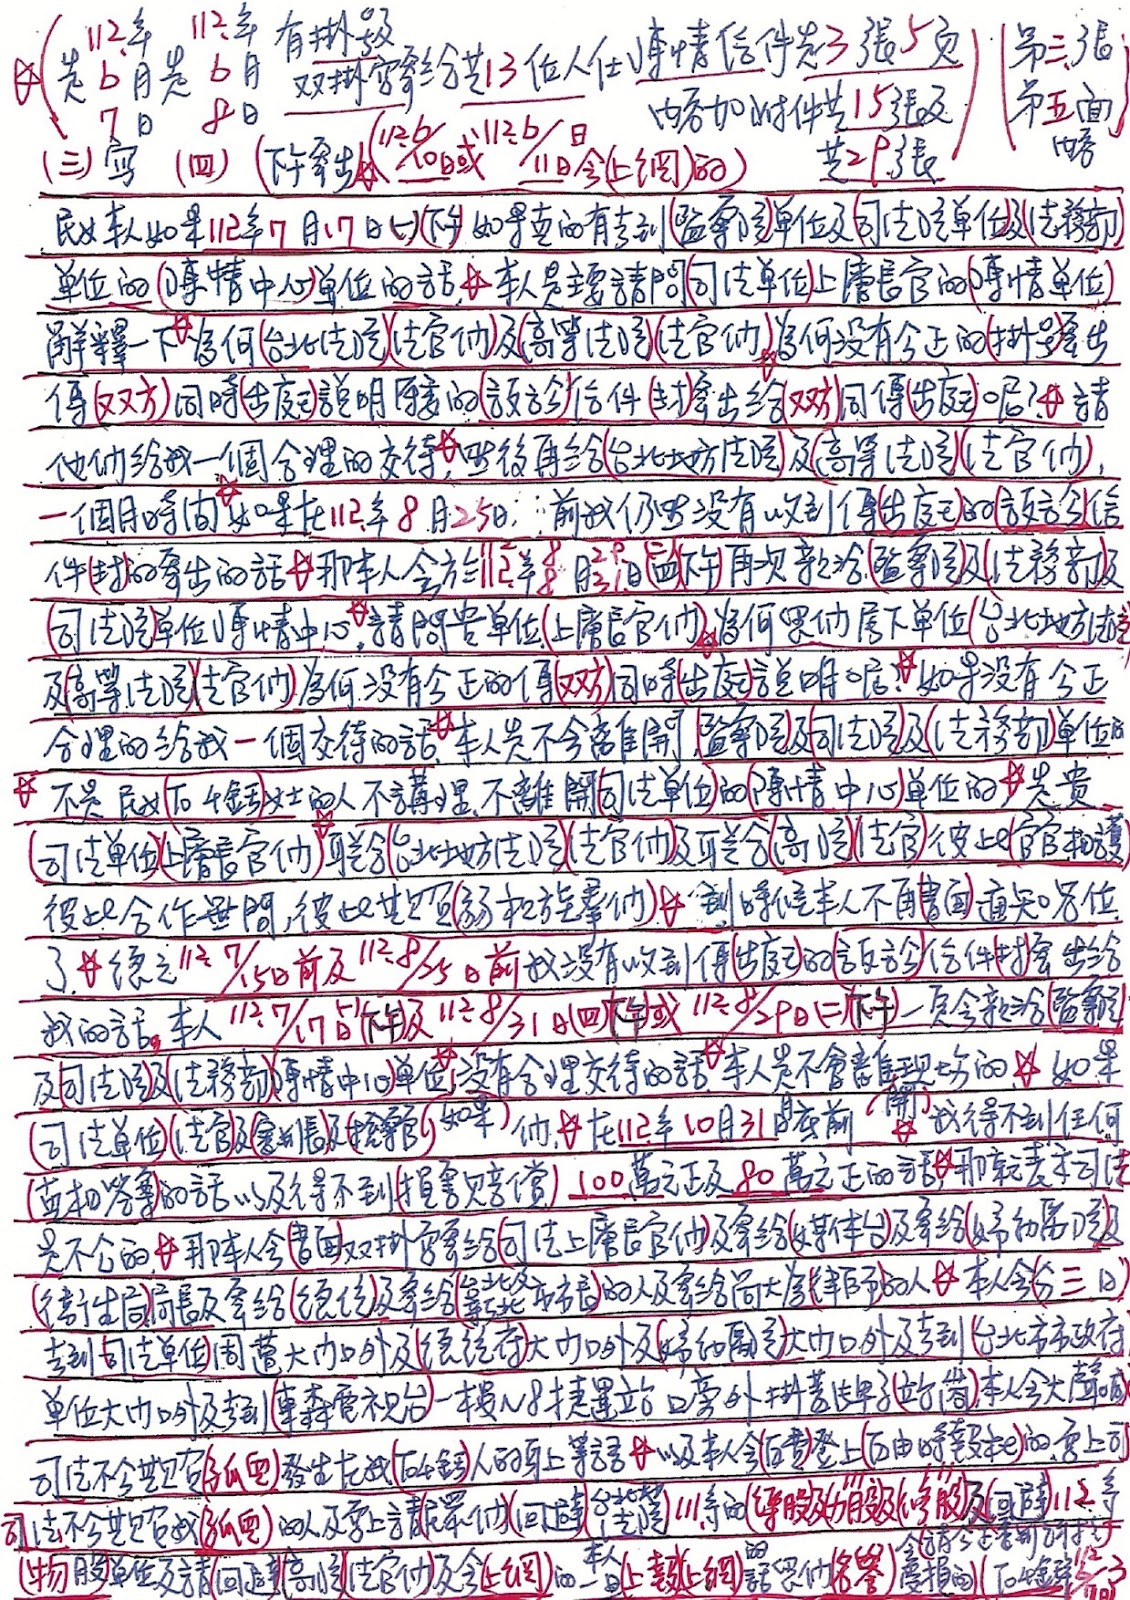 ☆(是112.年6月7日是112.年6月8日 有掛號及双掛寄給共13位人仕陳情信件共3張5页)(第三張
內容加附件共15張及 第五面
(三)寫 (四)(下午寄出☆(112.6/10日或112.6/11日会(上網)的) 共29張 內容
民女本人如果112.年7月17日(一)(下午)如果真的有去到(監察院)單位及(司法院)單位及(法務部)
單位的(陳情中心)單位的話☆本人是主要請問(司法單位)上層長官的(陳情單位)
解釋一下☆為何(台北法院)(法官們)及(高等法院)(法官們)☆為何没有公正的(掛号)寄出
傳(双方)同時(出庭)說明陳意的(訴訟)信件(封)寄出給(双方)同傳(出庭)呢?☆請
他们給我一個合理的交待☆然後再給(台北地方法院)及(高等法院)(法官们)
一個月時间☆如果在112.年8月25日前我仍然没有收到傳(出庭)的(訴訟)信
件(封)的寄出的話☆那本人会於112.年8月29日8月31日(四)(下午)再次親洽(監察院)及(法務部)及
(司法院)單位陳情中心☆請問貴單位(上層長官们)☆為何您们底下單位(台北地方法院)
及(高等法院)(法官们)為何没有公正的傳(双方)同時(出庭)說明呢☆如果没有公正
合理的給我一個交待的話☆本人是不会離開(監察院)及(司法院)及(法務部)單位的
☆不是民女 女士的人不講理不離開(司法單位)的(陳情中心)單位的☆是貴
(司法單位)(上層長官们)☆聯合(台北地方法院)(法官们)及联合(高院)(法官)彼此(官官相護)
彼此合作無間,彼此共欺(弱视族羣们)☆到時候本人不再書面通知各位
了☆總之112.7/15日前及112.8/25日前我没有收到傳(出庭)的(訴訟)信件(封)寄出給
我的話,本人112.7/17日(下午)及112.8/31日(四)(下午)或112.8/29日(二)(下午)一定会親洽(監察院)
及(司法院)及(法務部)陳情中心單位☆没有合理交待的話☆本人是不會離開現场的☆如果
(司法單位)(法官及審判長及檢察官)(如果)们☆在112.年10月31日底前☆我得不到任何
(真相答案)的話以及得不到(損害賠償)100萬元正及80萬元正的話☆那就表示司法
是不公的☆那本人会書面双掛寄給(司法上層長官们)及寄給(媒体台)及寄給(婦幼醫院)及
(衛生局)局長及寄給(總統)及寄給(台北新北市長)的人及寄給 律師的人☆本人会(分三日)
去到司法單位周遭大门口外及(總統府)大门口外及(婦幼醫院)大门口外及去到(台北市市政府)
單位大门口外及去到(東森電視台)一樓 捷運站口旁外掛著牌子(站崗)本人会大聲喊
司法不公共欺 發生在我 人的身上等話☆以及本人会(自費)登上(自由時報社)的寫上司
司法不公共欺我 的人及寫上請(羅)们(迴避) 111.等的 股及 股及 股及(迴避)112.等
(物)股單位及請(迴避)(高院)(法官们)及会(上網)的☆本人一日(上報)(上網)的話您们(名譽)会受損的